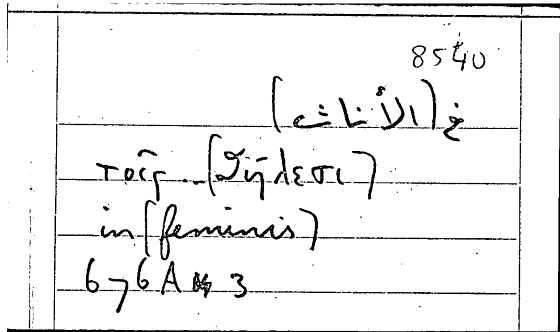 8540
في (الأناث)
τοῖς .. (θήλεσι)
in (feminis)
676A 3